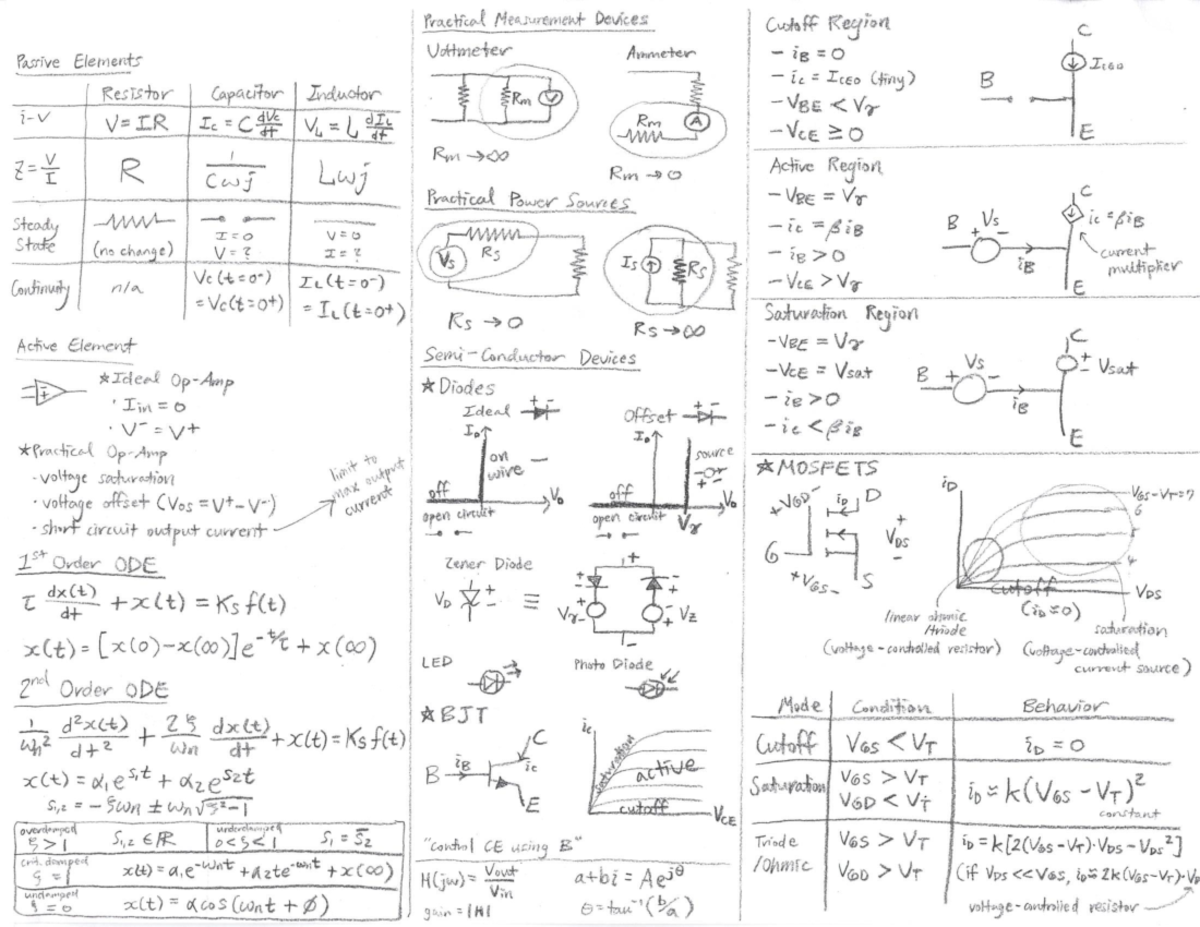 Passive Elements
Resistor Capacitor Inductor
i-V V=IR Ic = C dVc/dt VL = L dIL/dt
Z = V/I R 1/Cωj Lωj
Steady State (no change) I=0 V=? V=0 I=?
Continuity n/a Vc(t=0-) = Vc(t=0+) IL(t=0-) = IL(t=0+)
Active Element
★Ideal Op-Amp
· Iin = 0
· V⁻ = V⁺
★Practical Op-Amp
· voltage saturation
· voltage offset (Vos = V⁺-V⁻)
· short circuit output current
limit to max output current
1st Order ODE
τ dx(t)/dt + x(t) = Ks f(t)
x(t) = [x(0)-x(∞)]e^-t/τ + x(∞)
2nd Order ODE
1/ωn² d²x(t)/dt² + 2ζ/ωn dx(t)/dt + x(t) = Ks f(t)
x(t) = α₁e^s₁t + α₂e^s₂t
S₁,₂ = -ζωn ± ωn√ζ²-1
overdamped ζ>1 S₁,₂ ∈ ℝ underdamped 0<ζ<1 S₁ = S̄₂
crit. damped ζ=1 x(t) = α₁e^-ωnt + α₂te^-ωnt + x(∞)
undamped ζ=0 x(t) = αcos(ωnt + φ)
Practical Measurement Devices
Voltmeter Ammeter
Rm V Rm A
Rm → ∞ Rm → 0
Practical Power Sources
Vs Rs Is Rs
Rs → 0 Rs → ∞
Semi-Conductor Devices
★Diodes
Ideal + - Offset + -
ID on wire ID source - +
off VD off VD
open circuit open circuit Vγ
Zener Diode
VD + - ≡ + - + Vγ - - + Vz + -
LED Photo Diode
★BJT
B iB C ic E
ic saturation active cutoff VCE
"control CE using B"
H(jω) = Vout/Vin a+bi = Ae^jθ
gain = |H| θ = tan⁻¹(b/a)
Cutoff Region
- iB = 0
- ic = ICEO (tiny)
- VBE < Vγ
- VCE ≥ 0
B C ICEO E
Active Region
- VBE = Vγ
- ic = βiB
- iB > 0
- VCE > Vγ
B + Vs - iB C ic = βiB E
current multiplier
Saturation Region
- VBE = Vγ
- VCE = Vsat
- iB > 0
- ic < βiB
B + Vs - iB C + - Vsat E
★MOSFETS
+ VGD - iD D
G + VDS -
+ VGS - S
iD VGS-VT=7
6
5
4
cutoff (iD≈0) VDS
linear ohmic /triode
(voltage-controlled resistor)
saturation
(voltage-controlled current source)
Mode Condition Behavior
Cutoff VGS < VT iD = 0
Saturation VGS > VT VGD < VT iD ≈ k(VGS - VT)²
constant
Triode /Ohmic VGS > VT VGD > VT iD = k[2(VGS-VT)·VDS - VDS²]
(if VDS << VGS, iD ≈ 2k(VGS-VT)·VD
voltage-controlled resistor